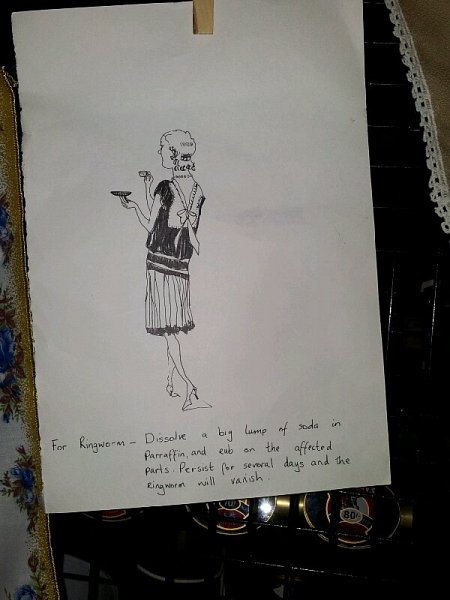 For Ringworm - Dissolve a big lump of soda in
Parraffin, and rub on the affected
parts. Persist for several days and the
Ringworm will vanish.
80/-